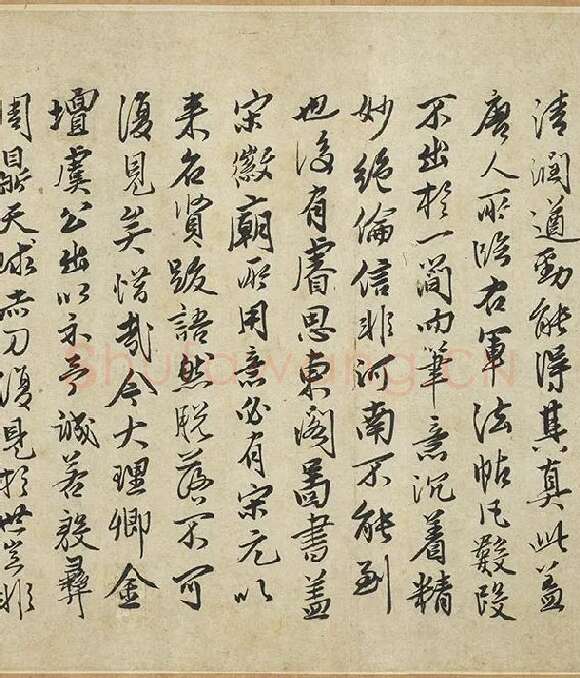 清潤遒勁能得其真此蓋
唐人所臨右軍法帖凡數段
不出於一簡而筆意沉着精
妙絶倫信非河南不能到
也後有睿思東閣圖書蓋
宋徽廟所用意必有宋元以
来名賢跋語然脱落不可
復見矣惜哉今大理卿金
壇虞公出以示予誠若殷彝
周鼎天球赤刀復見於世豈非
Shufawang.CN